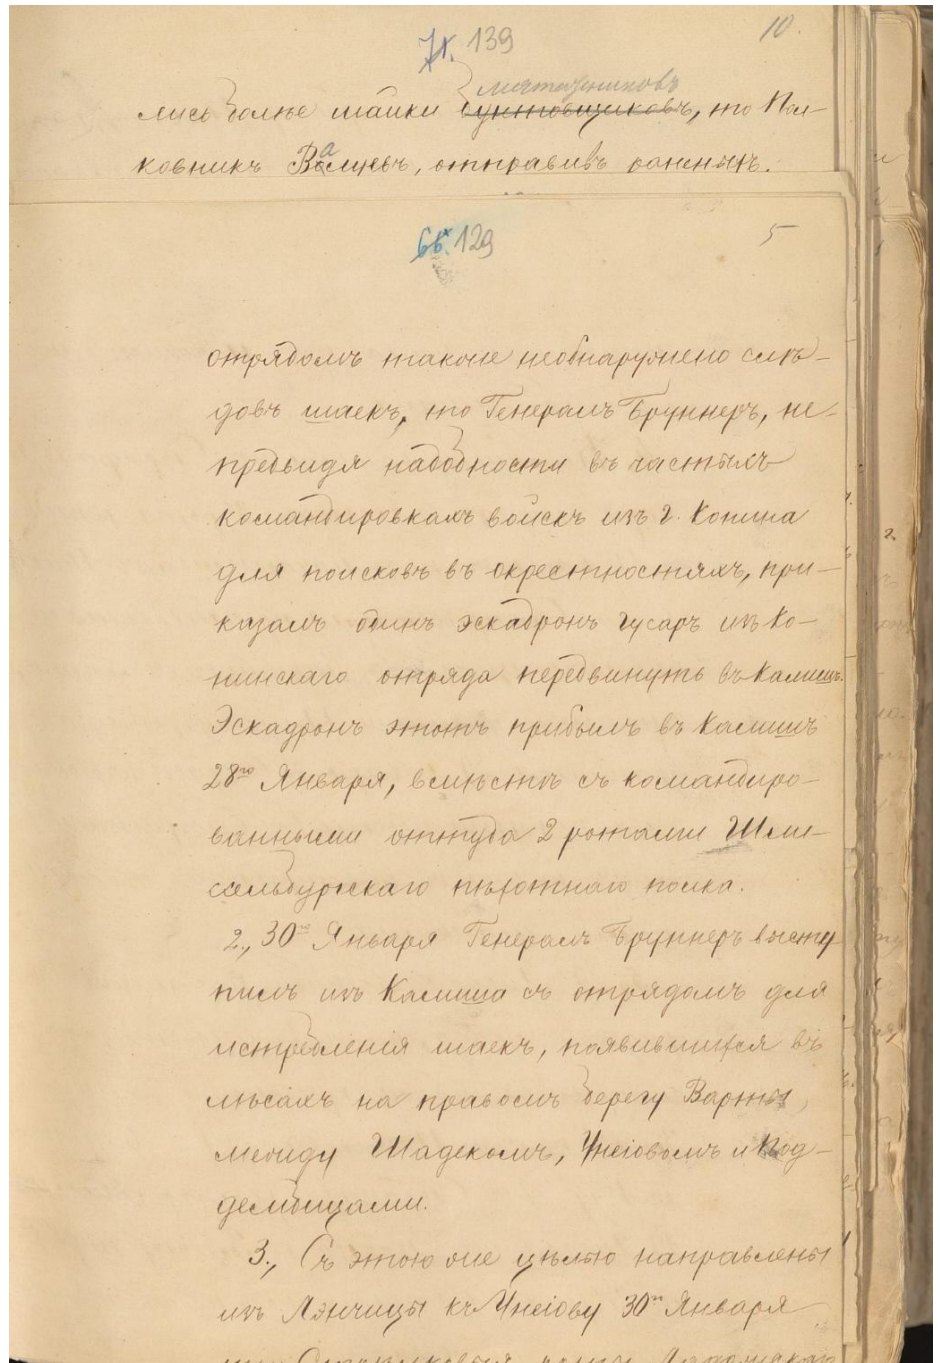 71. 139
10.
мятежниковъ
лись болѣе шайки бунтовщиковъ, то Пол-
ковникъ Валуевъ, отправивъ раненыхъ.
66. 129
5
отрядомъ также необнаружено слѣ-
довъ шаекъ, то Генералъ Бруннеръ, не-
предвидя надобности въ частыхъ
командировкахъ войскъ изъ г. Конина
для поисковъ въ окрестностяхъ, при-
казалъ одинъ эскадронъ гусаръ изъ Ко-
нинскаго отряда передвинуть въ Калишъ.
Эскадронъ этотъ прибылъ въ Калишъ
28го Января, вмѣстѣ съ командиро-
ванными оттуда 2 ротами Шли-
сельбургскаго пѣхотнаго полка.
2., 30го Января Генералъ Бруннеръ высту
пилъ изъ Калиша съ отрядомъ для
истребленія шаекъ, появившихся въ
лѣсахъ на правомъ берегу Варты,
между Шадекомъ, Унеіовомъ и Под-
дембицами.
3., Съ этою же цѣлью направлены
изъ Лэнчицы къ Унеіову 30го Января